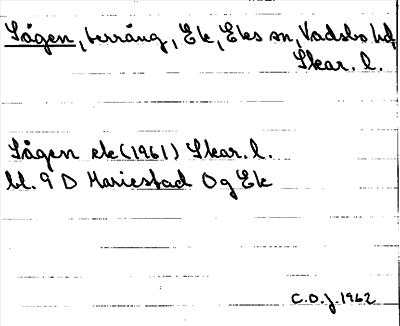 Sågen, terräng, Ek, Eks sn, Vadsbo hd,
Skar. l.
Sågen ek (1961) Skar. l.
bl. 9 D Mariestad Og Ek
C.O.J. 1962